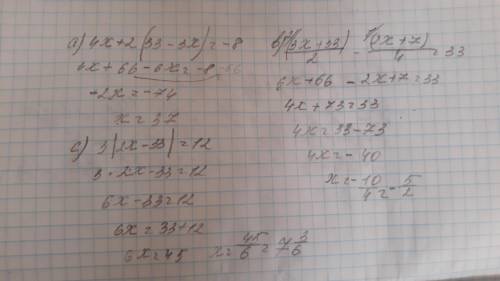 a) 4x+2(33-3x)=-8
4x+66-6x=-8-66
-2x=-74
x=37
c) 3(2x-33)=12
3·2x-33=12
6x-33=12
6x=33+12
6x=45 x=45/6=7 3/6
(3x+33)/2 - (2x+7)/4=33
6x+66-2x+7=33
4x+73=33
4x=33-73
4x=-40
x=-10/4=-5/2